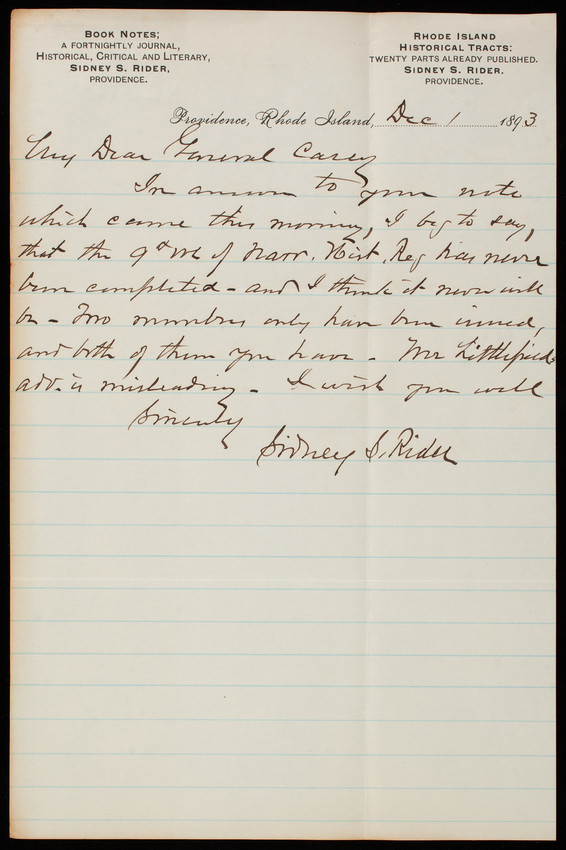 Book Notes;
a fortnightly journal,
Historical, Critical and Literary,
Sidney S. Rider,
Providence.
Rhode Island
Historical Tracts:
twenty parts already published.
Sidney S. Rider.
Providence.
Providence, Rhode Island, Dec 1 1893
My Dear General Casey
In answer to your note
which came this morning, I beg to say,
that the 9th vol of Narr. Hist. Reg has never
been completed - and I think it never will
be - Two numbers only have been issued,
and both of them you have - Mr Littlefields
adv. is misleading - I wish you well
Sincerely
Sidney S. Rider